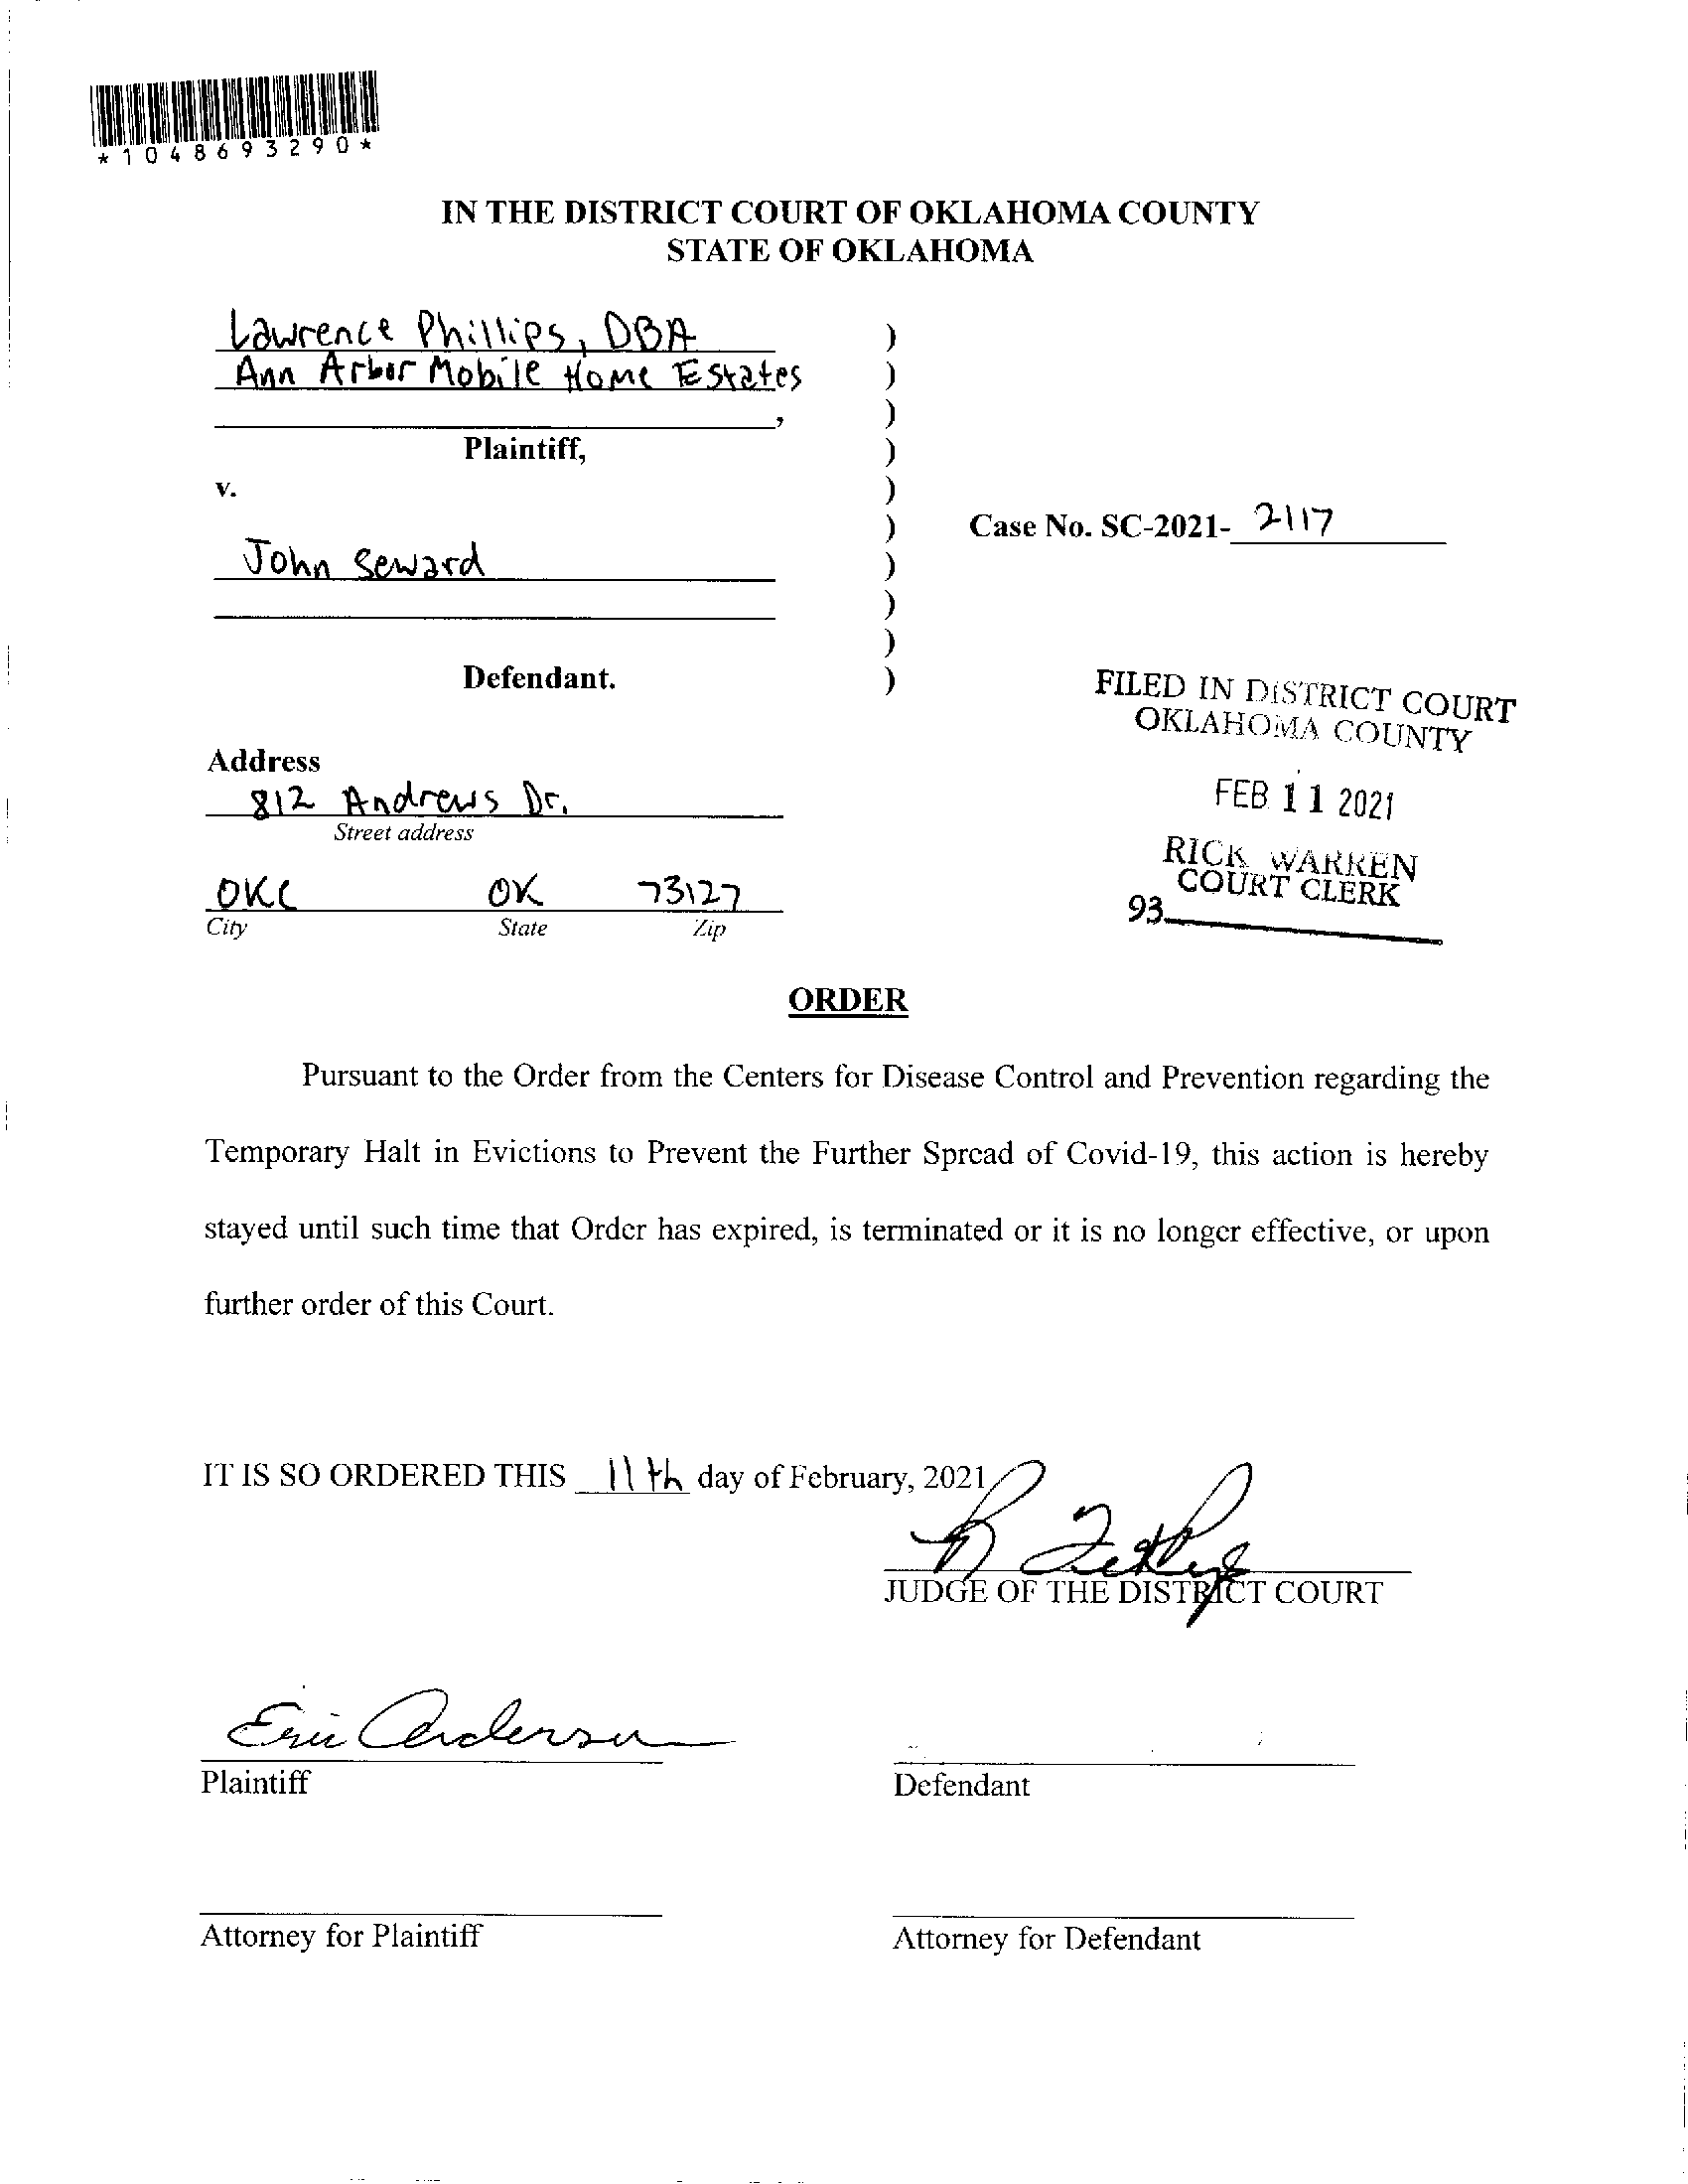 *1048693290*
IN THE DISTRICT COURT OF OKLAHOMA COUNTY
STATE OF OKLAHOMA
Lawrence Phillips, DBA )
Ann Arbor Mobile Home Estates )
, )
Plaintiff, )
v. )
Case No. SC-2021- 2117 )
John Seward )
)
)
Defendant. )
FILED IN DISTRICT COURT
OKLAHOMA COUNTY
FEB 11 2021
RICK WARREN
COURT CLERK
93
Address
812 Andrews Dr.
Street address
OKC OK 73127
City State Zip
ORDER
Pursuant to the Order from the Centers for Disease Control and Prevention regarding the
Temporary Halt in Evictions to Prevent the Further Spread of Covid-19, this action is hereby
stayed until such time that Order has expired, is terminated or it is no longer effective, or upon
further order of this Court.
IT IS SO ORDERED THIS 11th day of February, 2021
JUDGE OF THE DISTRICT COURT
Eric Anderson
Plaintiff Defendant
Attorney for Plaintiff Attorney for Defendant